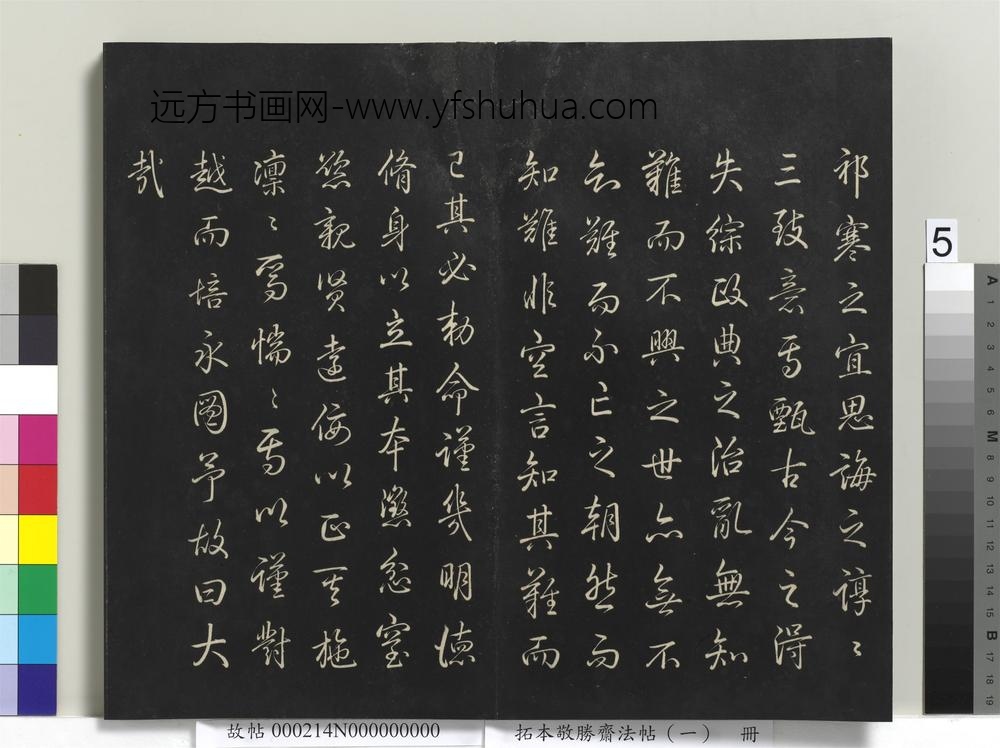 远方书画网-www.yfshuhua.com
祁寒之宜思誨之諄〻
三致意焉甄古今之得
失綜政典之治亂無知
難而不興之世亦無不
知難而不亡之朝然而
知難非空言知其難而
已其必勑命謹幾明德
脩身以立其本懲忿窒
慾親賢遠佞以正其施
凜〻焉惴〻焉以謹對
越而培永圖予故曰大
哉
5
A 1 2 3 4 5 6 M 8 9 10 11 12 13 14 15 B 17 18 19
故帖 000214N000000000
拓本敬勝齋法帖（一） 冊